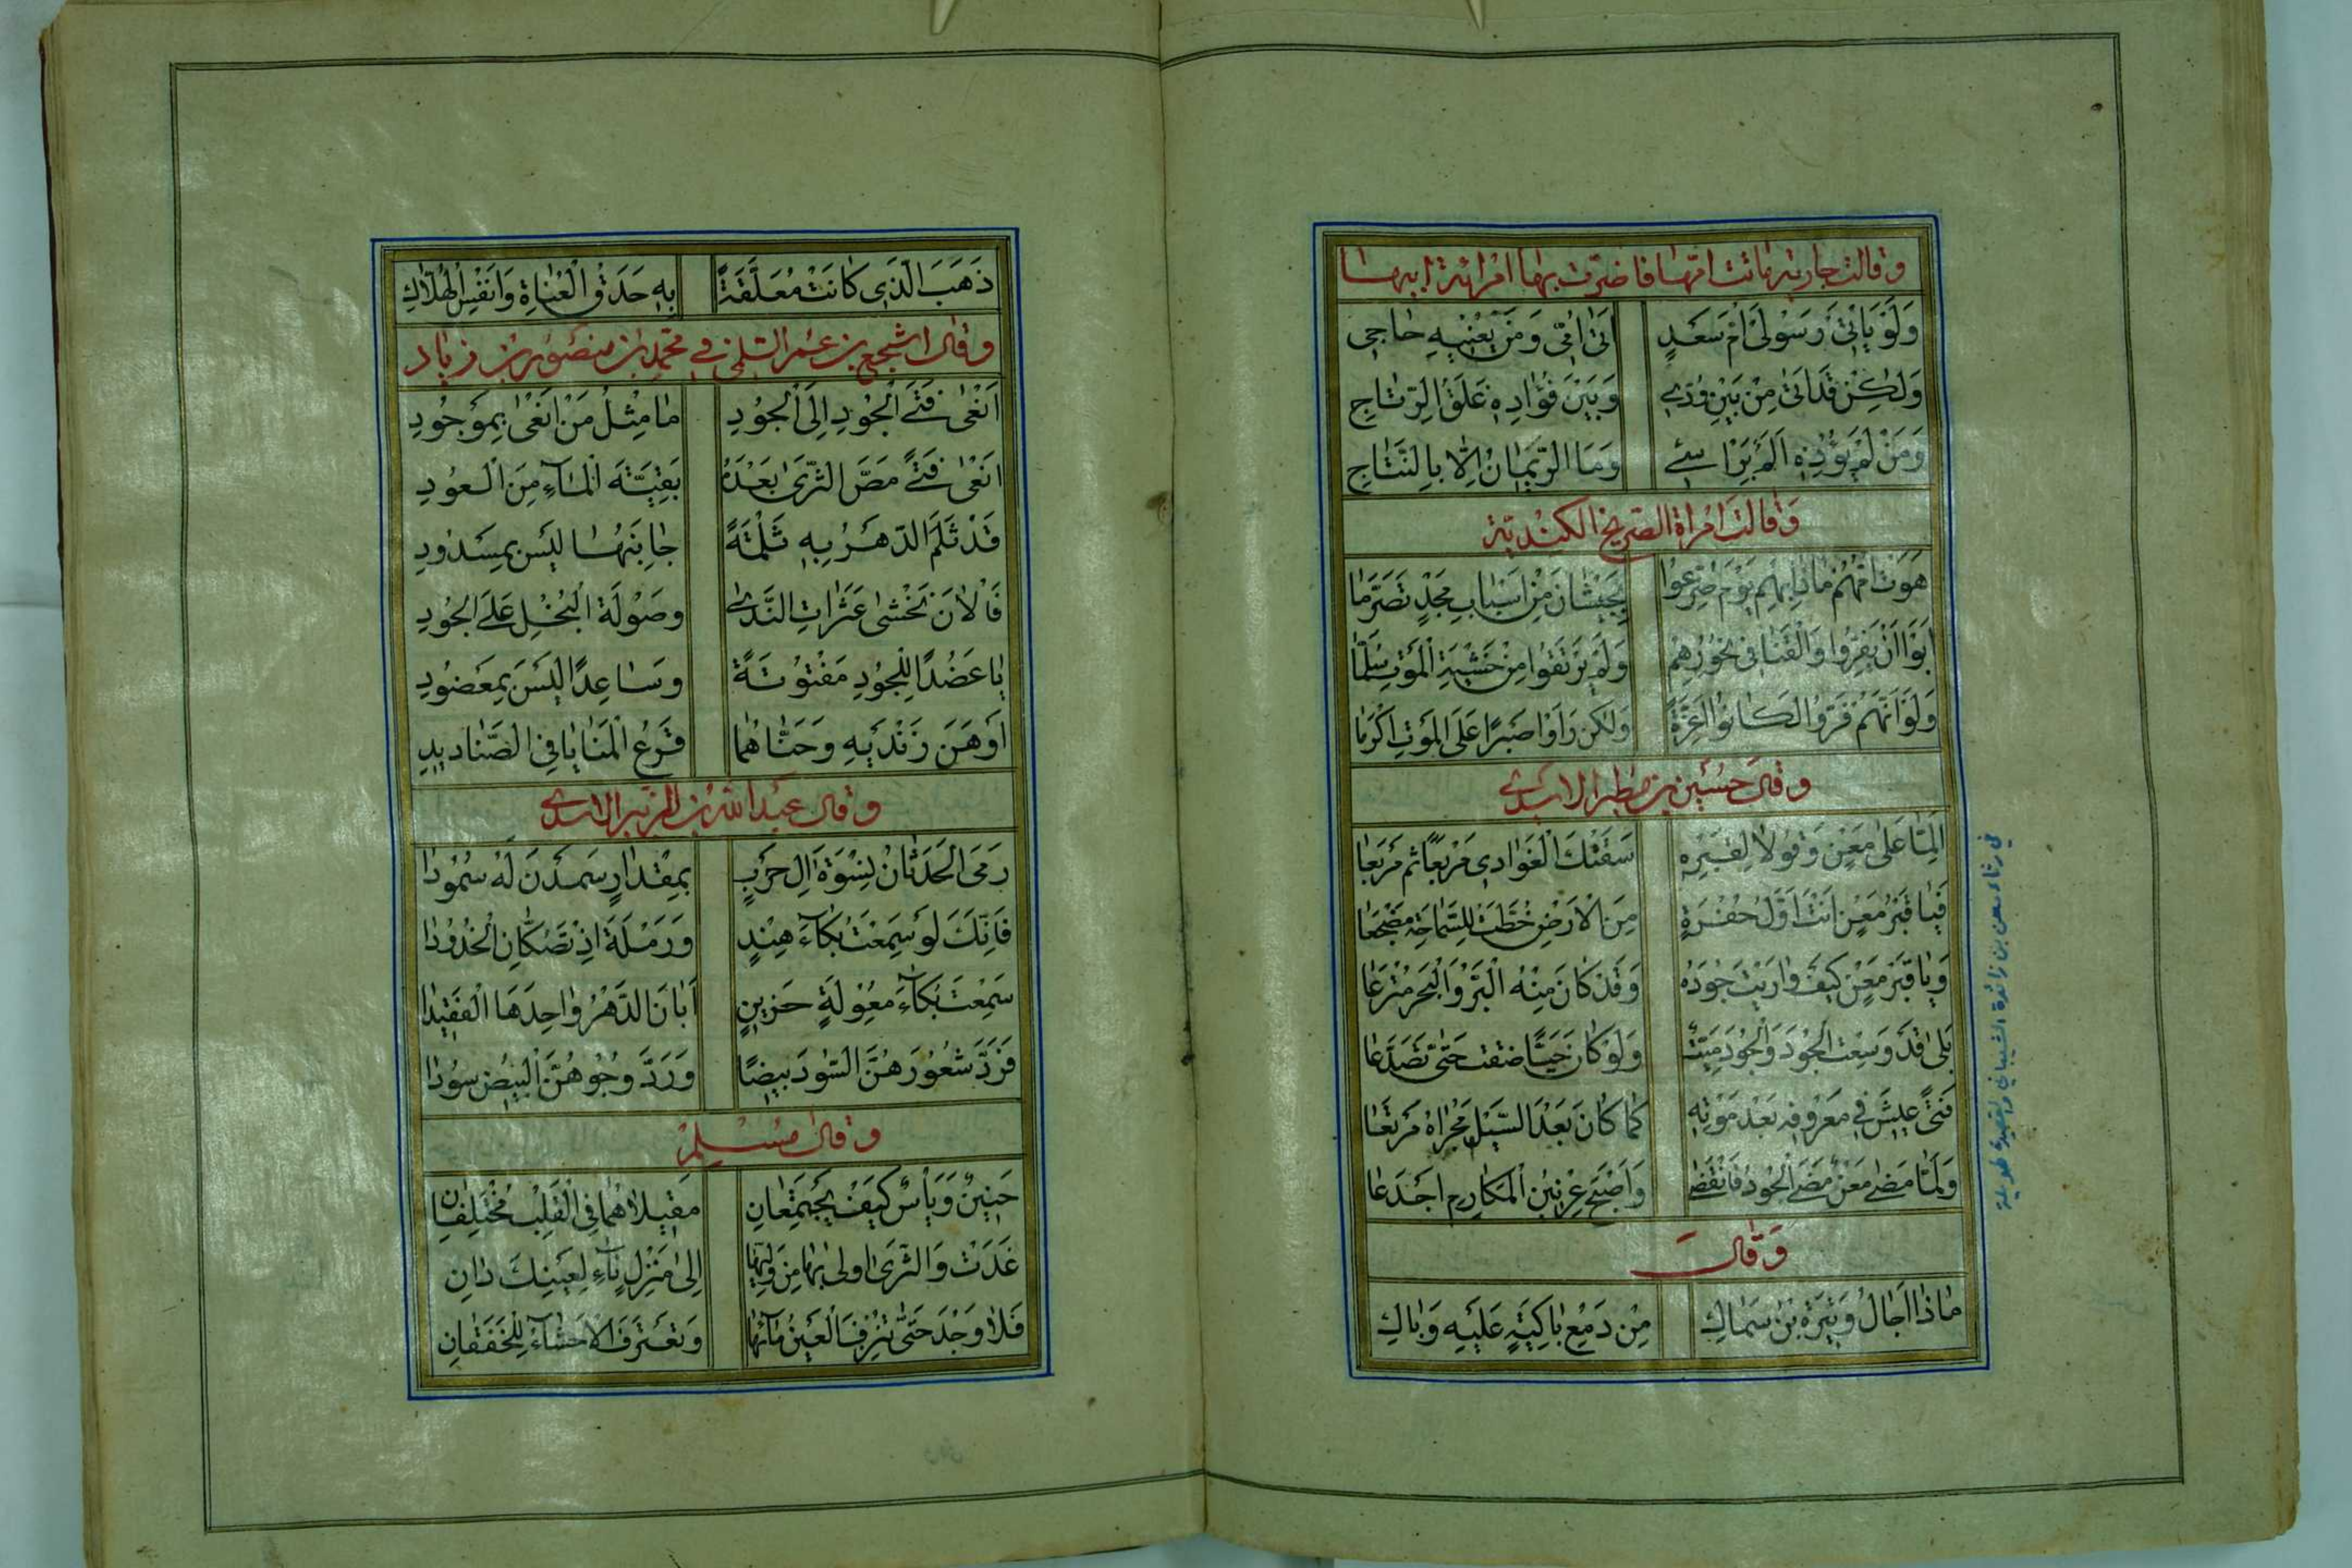 وقالت جارية ماتت امها فاضرت بها امرأة ابيها
وَلَوْ يَاْتِي رَسُولِي اُمَّ سَعْدٍ اَتَىٰ اُمِّي وَمَنْ يَعْنِيهِ حَاجِي
وَلٰكِنْ قَدْ اَتَىٰ مِنْ بَيْنِ وُدِّي وَبَيْنَ فُؤَادِهِ غَلَقُ الرِّتَاجِ
وَمَنْ لَمْ يُؤْذِهِ اَلَمٌ بِرَاْسِي وَمَا الرِّئْمَانُ اِلَّا بِالنَّتَاجِ
وَقالت امراة الصريخ الكنديّة
هَوَتْ اُمُّهُمْ مَاذَا بِهِمْ يَوْمَ صُرِّعُوا بِجَيْشَانَ مِنْ اَسْبَابِ مَجْدٍ تَصَرَّمَا
اَبَوْا اَنْ يَفِرُّوا وَالْقَنَا فِي نُحُورِهِمْ وَلَمْ يَرْتَقُوا مِنْ خَشْيَةِ الْمَوْتِ سُلَّمَا
وَلَوْ اَنَّهُمْ فَرُّوا لَكَانُوا اَعِزَّةً وَلٰكِنْ رَاَوْا صَبْرًا عَلَى الْمَوْتِ اَكْرَمَا
وقال حسين بن مطير الاسدي
اَلِمَّا عَلَىٰ مَعْنٍ وَقُولَا لِقَبْرِهِ سَقَتْكَ الْغَوَادِي مَرْبَعًا ثُمَّ مَرْبَعَا
فَيَا قَبْرَ مَعْنٍ اَنْتَ اَوَّلُ حُفْرَةٍ مِنَ الْاَرْضِ خُطَّتْ لِلسَّمَاحَةِ مَضْجَعَا
وَيَا قَبْرَ مَعْنٍ كَيْفَ وَارَيْتَ جُودَهُ وَقَدْ كَانَ مِنْهُ الْبَرُّ وَالْبَحْرُ مُتْرَعَا
بَلَىٰ قَدْ وَسِعْتَ الْجُودَ وَالْجُودُ مَيِّتٌ وَلَوْ كَانَ حَيًّا ضِقْتَ حَتَّىٰ تَصَدَّعَا
فَتًى عِيشَ فِي مَعْرُوفِهِ بَعْدَ مَوْتِهِ كَمَا كَانَ بَعْدَ السَّيْلِ مَجْرَاهُ مَرْتَعَا
وَلَمَّا مَضَىٰ مَعْنٌ مَضَى الْجُودُ فَانْقَضَىٰ وَاَصْبَحَ عِرْنِينُ الْمَكَارِمِ اَجْدَعَا
وَقال
مَاذَا اَجَالَ وَتِيرَةُ بْنُ سِمَاكِ مِنْ دَمْعِ بَاكِيَةٍ عَلَيْهِ وَبَاكِ
في رثاء معن بن زائدة الشيباني والقصيدة طويلة
ذَهَبَ الَّذِي كَانَتْ مُعَلَّقَةً بِهِ حَدَقُ الْعُنَاةِ وَاَنْفُسُ الْهُلَّاكِ
وقال اشجع بن عمر السلمي في محمد بن منصور بن زياد
اَنْعَىٰ فَتَى الْجُودِ اِلَى الْجُودِ مَا مِثْلُ مَنْ اَنْعَىٰ بِمَوْجُودِ
اَنْعَىٰ فَتًى مَصَّ الثَّرَىٰ بَعْدَهُ بَقِيَّةَ الْمَاءِ مِنَ الْعُودِ
قَدْ ثَلَمَ الدَّهْرُ بِهِ ثَلْمَةً جَانِبُهَا لَيْسَ بِمَسْدُودِ
فَالْاٰنَ نَخْشَىٰ عَثَرَاتِ النَّدَىٰ وَصَوْلَةَ الْبُخْلِ عَلَى الْجُودِ
يَا عَضُدًا لِلْجُودِ مَفْتُوتَةً وَسَاعِدًا لَيْسَ بِمَعْضُودِ
اَوْهَنَ زَنْدَيْهِ وَحَتَّاهُمَا قَرْعُ الْمَنَايَا فِي الصَّنَادِيدِ
وقال عبد الله بن الزبير الاسدي
رَمَى الْحَدَثَانُ نِسْوَةَ اٰلِ حَرْبٍ بِمِقْدَارٍ سَمَدْنَ لَهُ سُمُودَا
فَاِنَّكَ لَوْ سَمِعْتَ بُكَآءَ هِنْدٍ وَرَمْلَةَ اِذْ تَصُكَّانِ الْخُدُودَا
سَمِعْتَ بُكَآءَ مُعْوِلَةٍ حَزِينٍ اَبَانَ الدَّهْرُ وَاحِدَهَا الْفَقِيدَا
فَرَدَّ شُعُورَهُنَّ السُّودَ بِيضًا وَرَدَّ وُجُوهَهُنَّ الْبِيضَ سُودَا
وقال مسلم
حَنِينٌ وَيَأْسٌ كَيْفَ يَجْتَمِعَانِ مَقِيلَاهُمَا فِي الْقَلْبِ مُخْتَلِفَانِ
غَدَتْ وَالثَّرَىٰ اَوْلَىٰ بِهَا مِنْ وَلِيِّهَا اِلَىٰ مَنْزِلٍ نَآءٍ لِعَيْنِكَ دَانِ
فَلَا وَجْدَ حَتَّىٰ تَنْزِفَ الْعَيْنُ مَآءَهَا وَتَعْتَرِفَ الْاَحْشَآءُ لِلْخَفَقَانِ